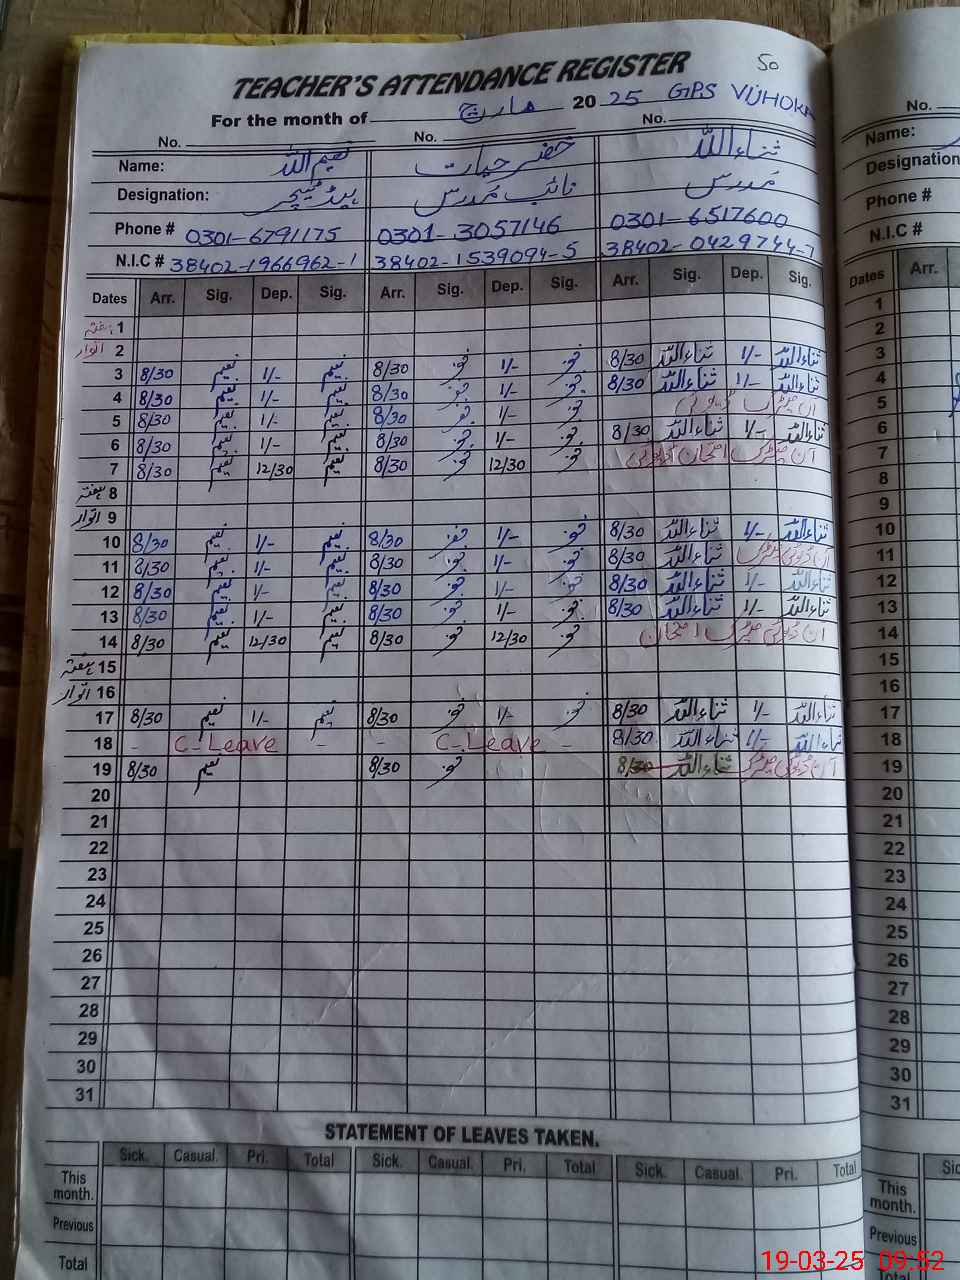 50
TEACHER'S ATTENDANCE REGISTER
For the month of مارچ 2025 GPS VIJHOKA
No. No. No.
Name: نعیم اللہ خضر حیات ثناء اللہ
Designation: ہیڈ ٹیچر نائب مدرس مدرس
Phone # 0301-6791175 0301-3057146 0301-6517600
N.I.C # 38402-1966962-1 38402-1539094-5 38402-0429744-7
Dates Arr. Sig. Dep. Sig. Arr. Sig. Dep. Sig. Arr. Sig. Dep. Sig.
ہفتہ 1
اتوار 2
3 8/30 نعیم 1/- نعیم 8/30 1/- 8/30 ثناءاللہ 1/- ثناءاللہ
4 8/30 نعیم 1/- نعیم 8/30 1/- 8/30 ثناءاللہ 1/- ثناءاللہ
5 8/30 نعیم 1/- نعیم 8/30 1/- آن میٹرک ڈیوٹی
6 8/30 نعیم 1/- نعیم 8/30 1/- 8/30 ثناءاللہ 1/- ثناءاللہ
7 8/30 نعیم 12/30 نعیم 8/30 12/30 آن میٹرک امتحان ڈیوٹی
ہفتہ 8
اتوار 9
10 8/30 نعیم 1/- نعیم 8/30 1/- 8/30 ثناءاللہ 1/- ثناءاللہ
11 8/30 نعیم 1/- نعیم 8/30 1/- 8/30 ثناءاللہ آن ڈیوٹی میٹرک
12 8/30 نعیم 1/- نعیم 8/30 1/- 8/30 ثناءاللہ 1/- ثناءاللہ
13 8/30 نعیم 1/- نعیم 8/30 1/- 8/30 ثناءاللہ 1/- ثناءاللہ
14 8/30 نعیم 12/30 نعیم 8/30 12/30 آن ڈیوٹی میٹرک امتحان
ہفتہ 15
اتوار 16
17 8/30 نعیم 1/- نعیم 8/30 1/- 8/30 ثناءاللہ 1/- ثناءاللہ
18 - C-Leave - - C-Leave - 8/30 ثناءاللہ 1/- ثناءاللہ
19 8/30 نعیم 8/30 8/30 ثناءاللہ آن ڈیوٹی میٹرک
20
21
22
23
24
25
26
27
28
29
30
31
STATEMENT OF LEAVES TAKEN.
Sick. Casual. Pri. Total Sick. Casual. Pri. Total Sick. Casual. Pri. Total
This month.
Previous
Total
No.
Name:
Designation
Phone #
N.I.C #
Dates Arr.
1
2
3
4
5
6
7
8
9
10
11
12
13
14
15
16
17
18
19
20
21
22
23
24
25
26
27
28
29
30
31
This month.
Previous
Total
19-03-25 09:52